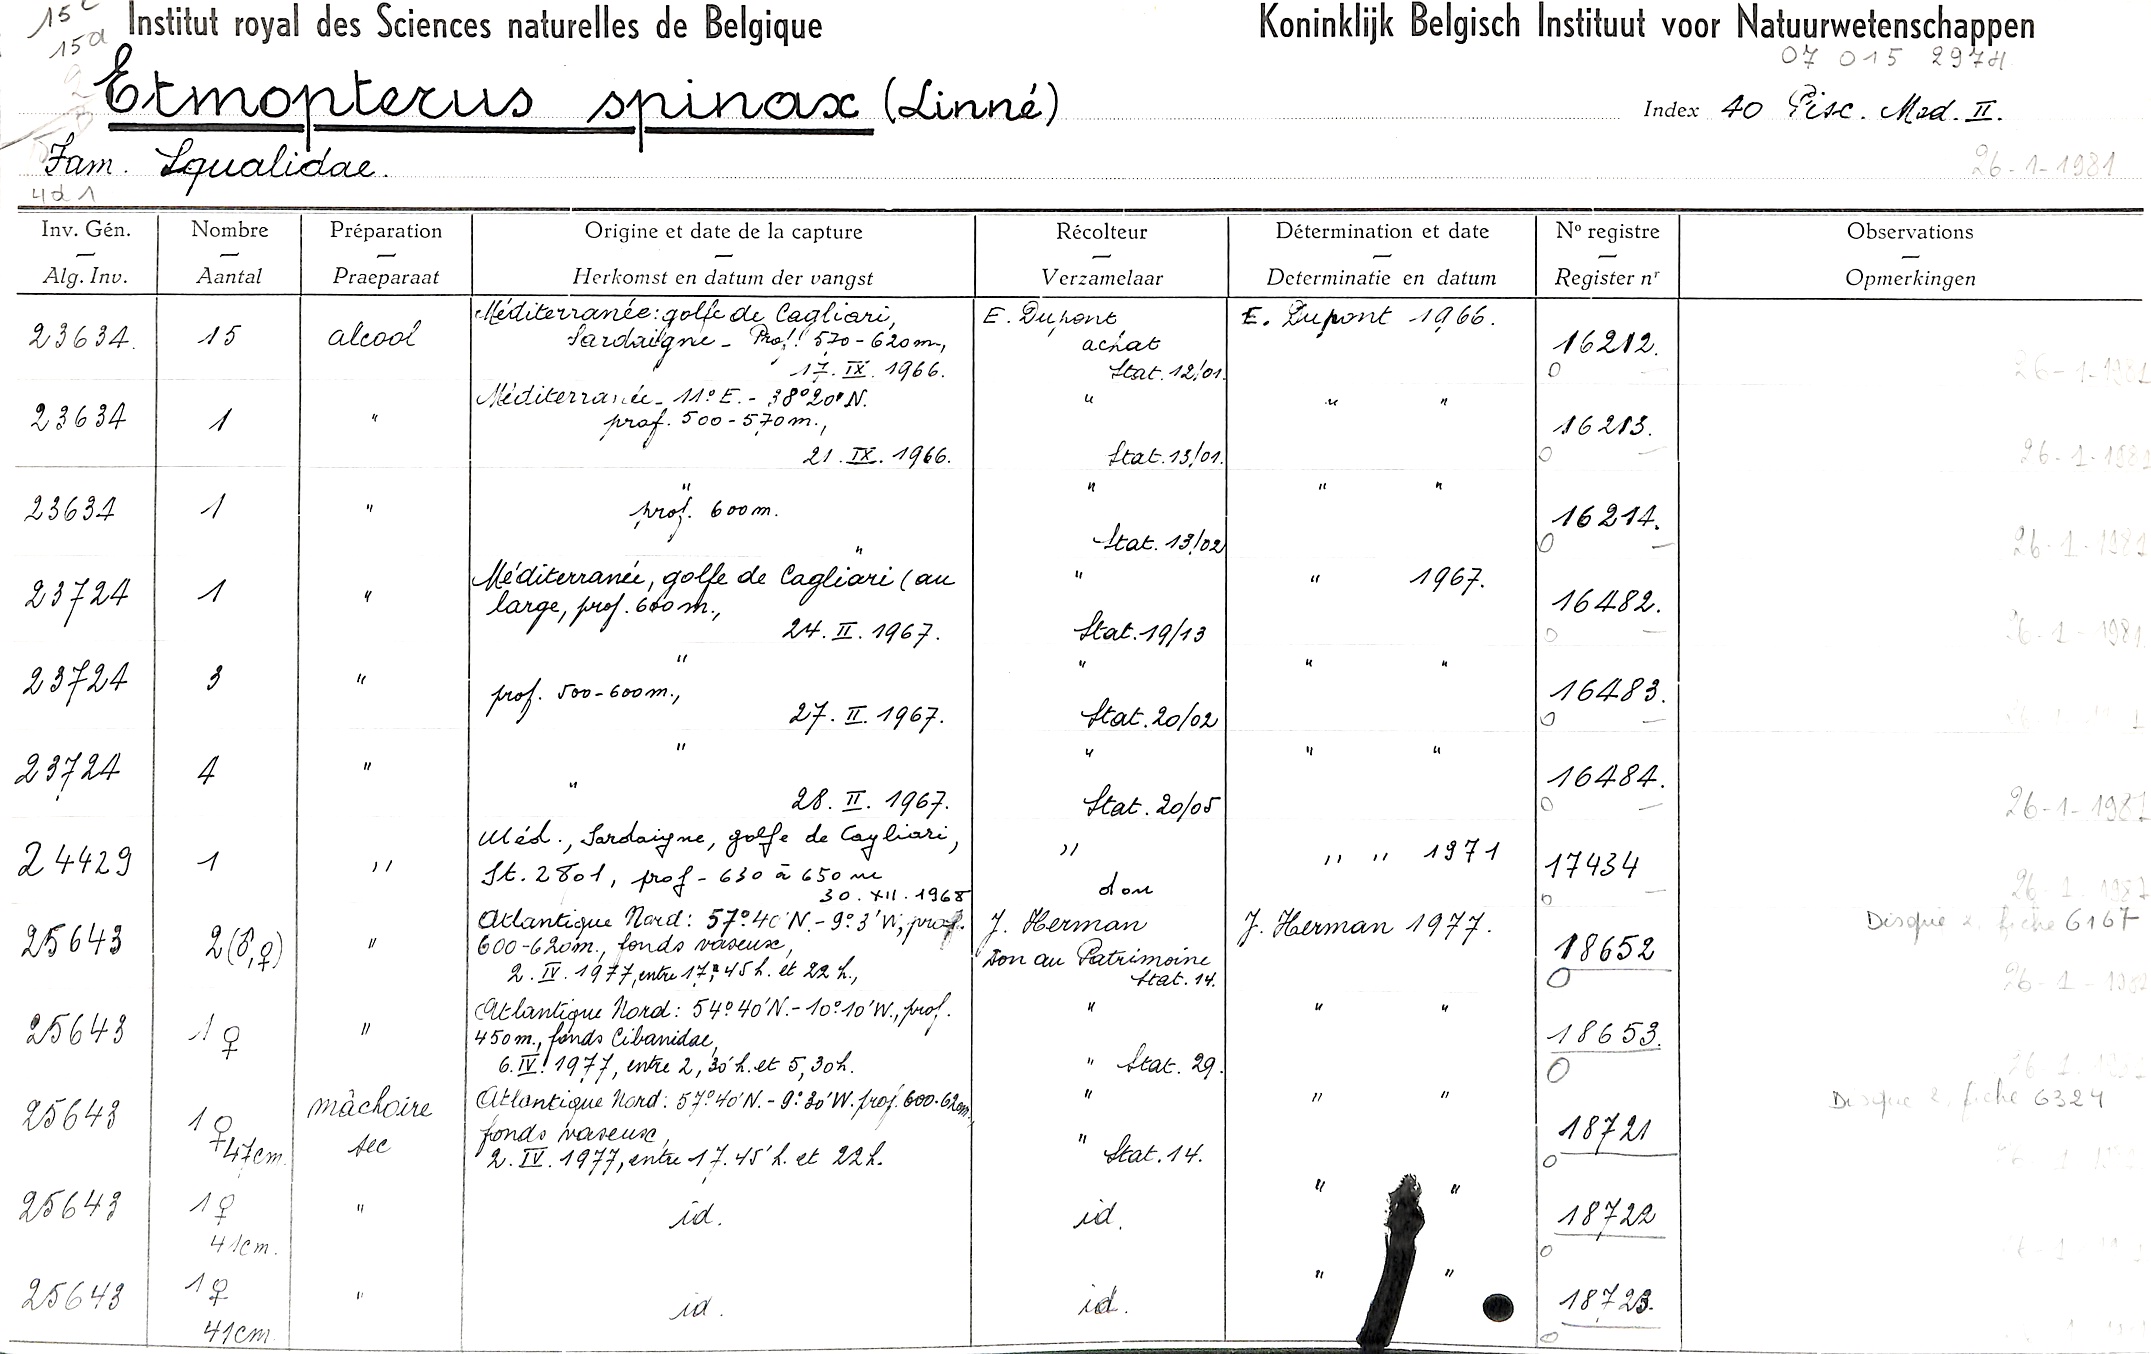 15c Institut royal des Sciences naturelles de Belgique Koninklijk Belgisch Instituut voor Natuurwetenschappen
15a 07 015 2974
Etmopterus spinax (Linné) Index 40 Pisc. Med. II.
Fam. Squalidae. 26-1-1981
4d1
Inv. Gén. Nombre Préparation Origine et date de la capture Récolteur Détermination et date No registre Observations
Alg. Inv. Aantal Praeparaat Herkomst en datum der vangst Verzamelaar Determinatie en datum Register nr Opmerkingen
Méditerranée: golfe de Cagliari, E. Dupont E. Dupont 1966.
23634. 15 alcool Sardaigne - Prof. 570-620m., achat 16212.
17. IX. 1966. Stat. 12/01. 26-1-1981
Méditerranée - 11° E. - 38°20' N. " " "
23634 1 " prof. 500-570m., 16213.
21. IX. 1966. Stat. 13/01. 26-1-1981
" " " "
23634 1 " prof. 600m. 16214.
" Stat. 13/02 26-1-1981
Méditerranée, golfe de Cagliari (au " " 1967.
23724 1 " large, prof. 600m., 16482.
24. II. 1967. Stat. 19/13 26-1-1981
" " " "
23724 3 " prof. 500-600m., 16483.
27. II. 1967. Stat. 20/02
" " " "
23724 4 " " 16484.
28. II. 1967. Stat. 20/05 26-1-1981
Méd., Sardaigne, golfe de Cagliari, " " " 1971
24429 1 " St. 2801, prof - 630 à 650 m 17434
30. XII. 1968 don 26-1-1981
Atlantique Nord: 57°40'N. - 9°3'W, prof. J. Herman J. Herman 1977. Disque 2, fiche 6167
25643 2(♂,♀) " 600-620m., fonds vaseux, don au Patrimoine 18652
2. IV. 1977, entre 17,45 h. et 22 h., Stat. 14. 26-1-1981
Atlantique Nord: 54°40'N. - 10°10'W., prof. " " "
25643 1♀ " 450m., fonds Cibanidae, 18653.
6. IV. 1977, entre 2,30 h. et 5,30h. " Stat. 29. 26-1-1981
Atlantique Nord: 57°40'N. - 9°30'W. prof. 600-620m, " " " Disque 2, fiche 6324
25643 1♀ mâchoire fonds vaseux, " 18721
47cm. sec 2. IV. 1977, entre 17.45 h. et 22h. Stat. 14.
" "
25643 1♀ " id. id. 18722
41cm.
" "
25643 1♀ " id. id. 18723.
41cm.